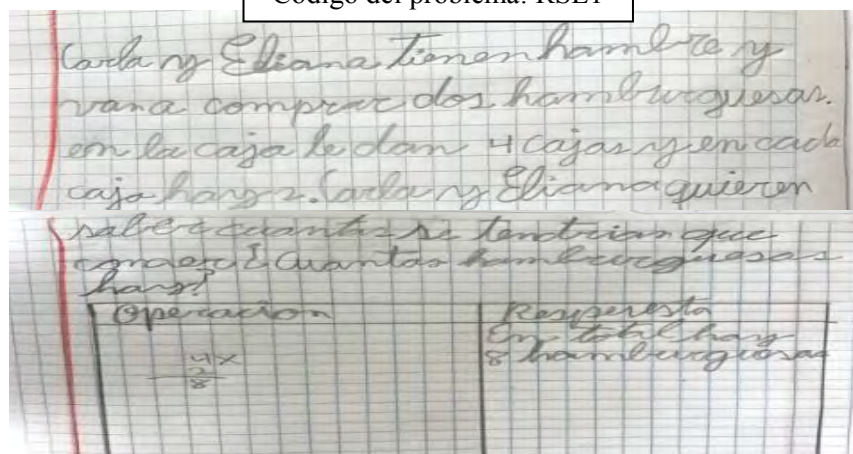 Código del problema: RSE1
Carla y Eliana tienen hambre y
van a comprar dos hamburguesas.
en la caja le dan 4 cajas y en cada
caja hay 2. Carla y Eliana quieren
saber cuantas se tendrian que
comer ¿Cuantas hamburguesas
hay?
Operacion
Respuesta
4x
2
8
En total hay
8 hamburguesas